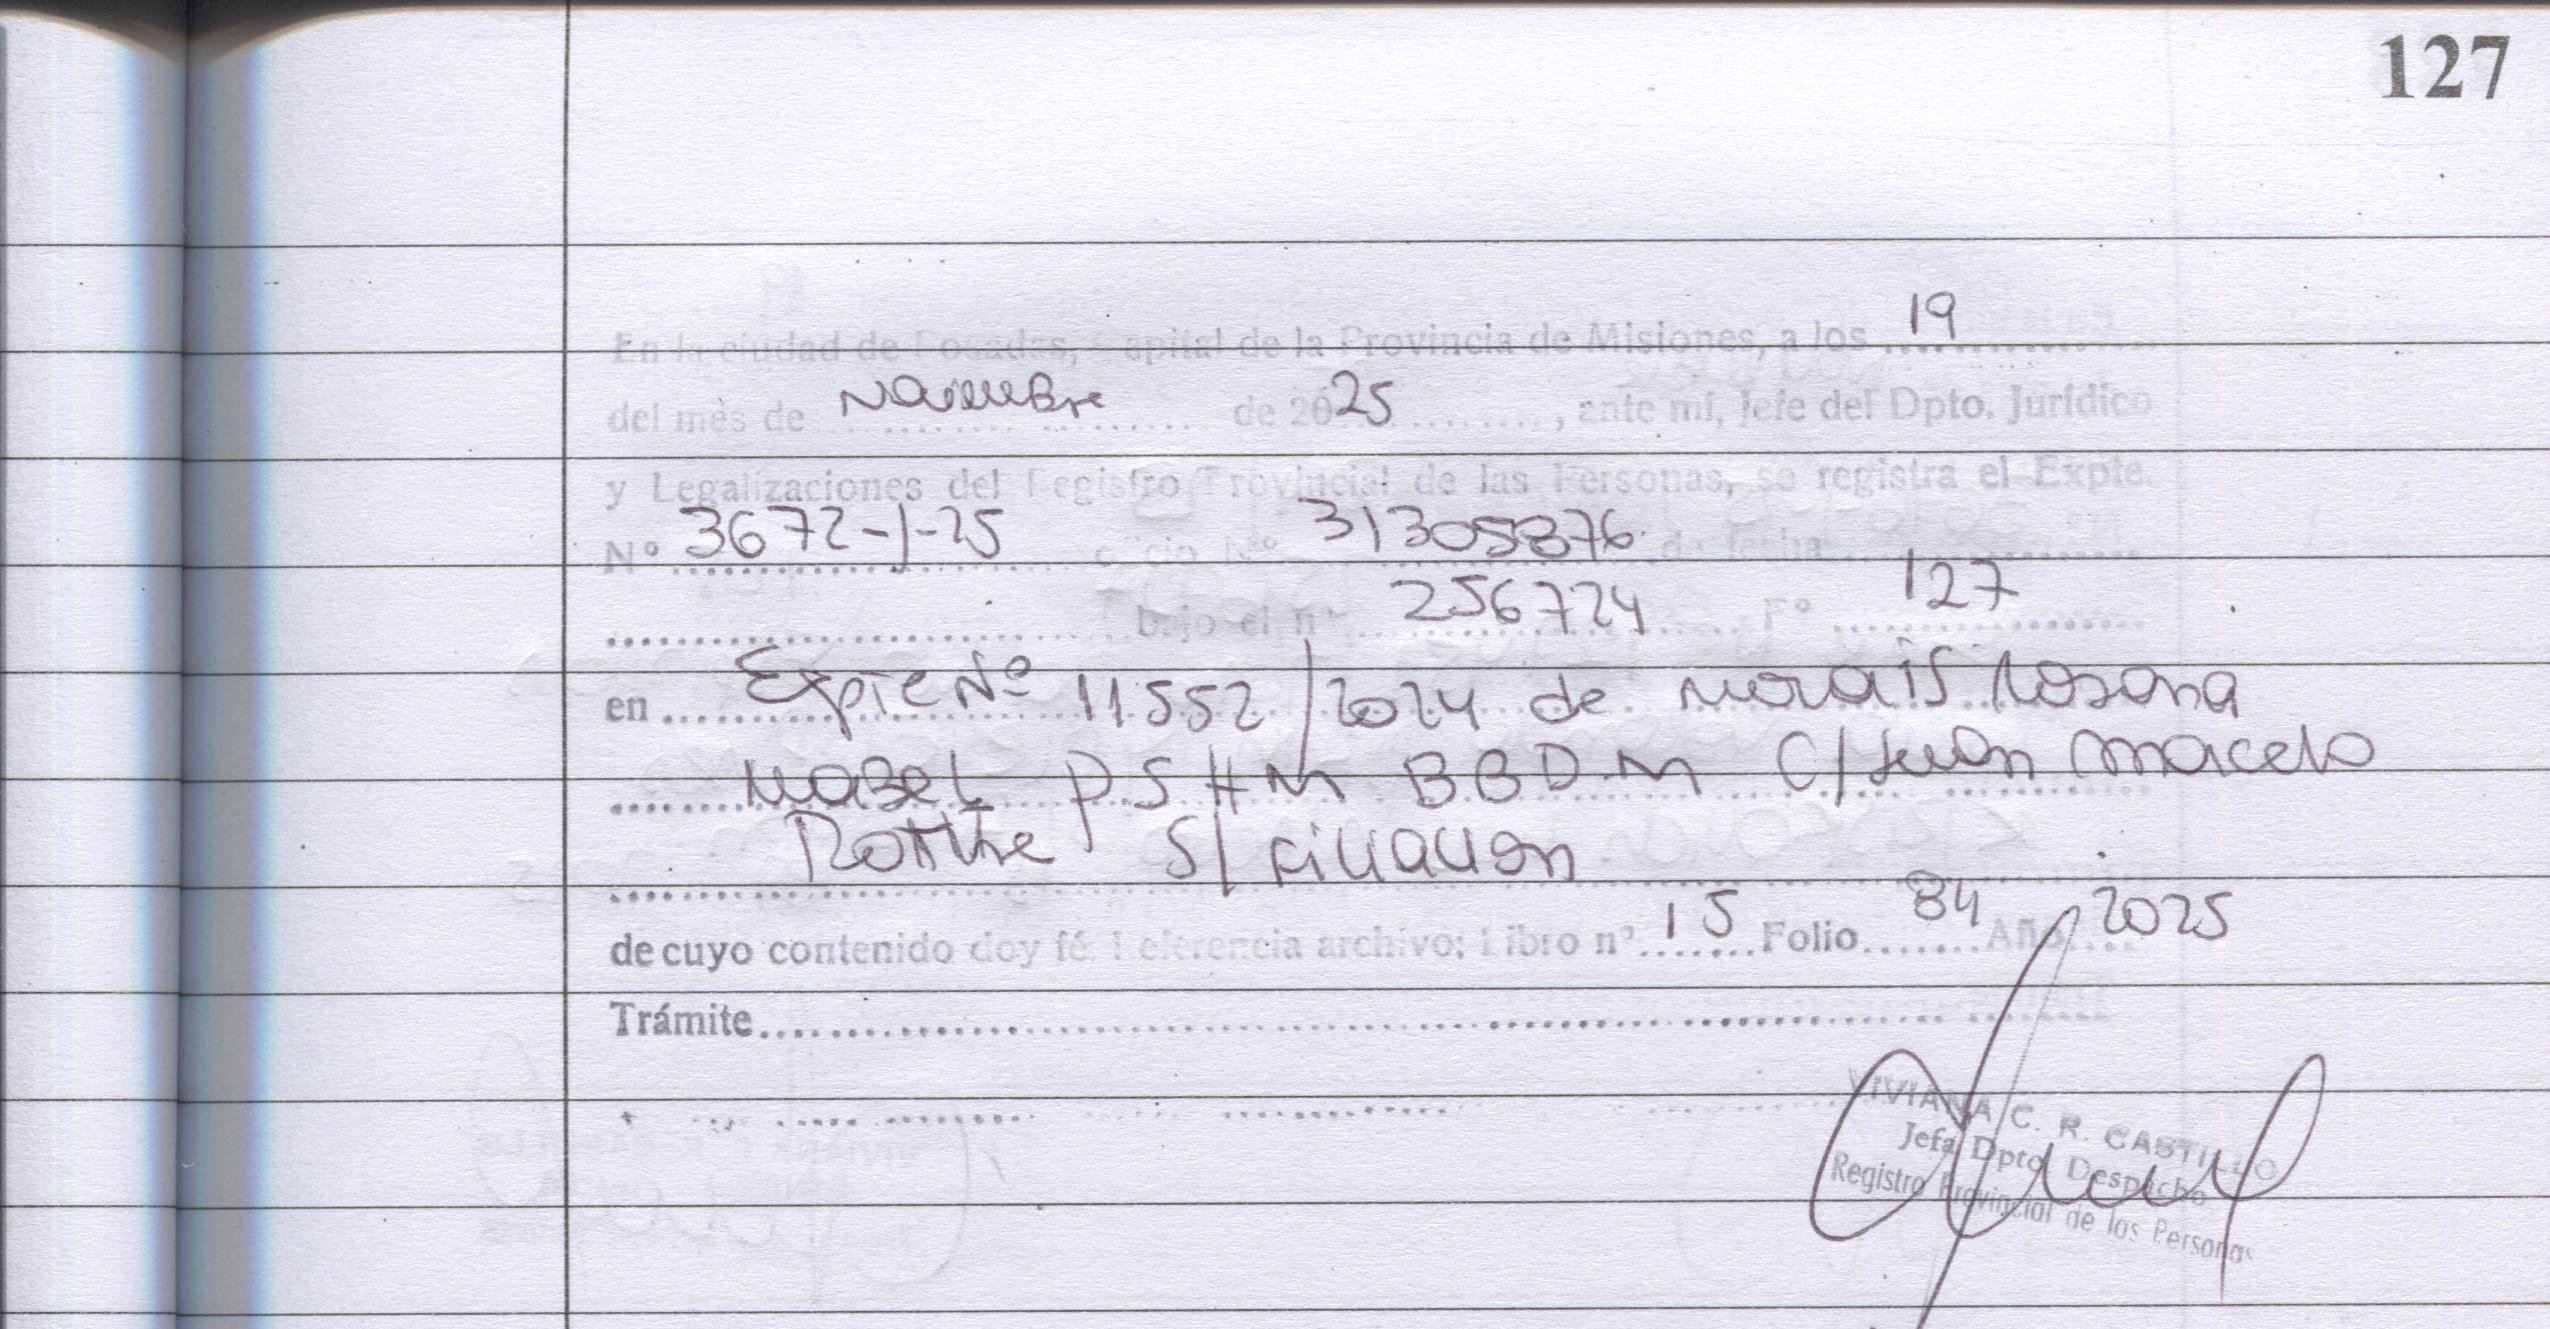 127
En la ciudad de Posadas, Capital de la Provincia de Misiones, a los 19
del mes de Noviembre de 2025, ante mí, Jefe del Dpto. Jurídico
y Legalizaciones del Registro Provincial de las Personas, se registra el Expte.
Nº 3672-J-25 oficio Nº 31305876 de fecha
bajo el nº 256724 Fº 127
en Expte Nº 11552/2024 de Morais Rosana
Mabel P S H M B B D M C/ Juan Marcelo
S/ Filiación
de cuyo contenido doy fé. Referencia archivo: Libro nº 15 Folio 84 Año 2025
Trámite
VIVIANA C. R. CASTILLO
Jefa Dpto. Despacho
Registro Provincial de las Personas